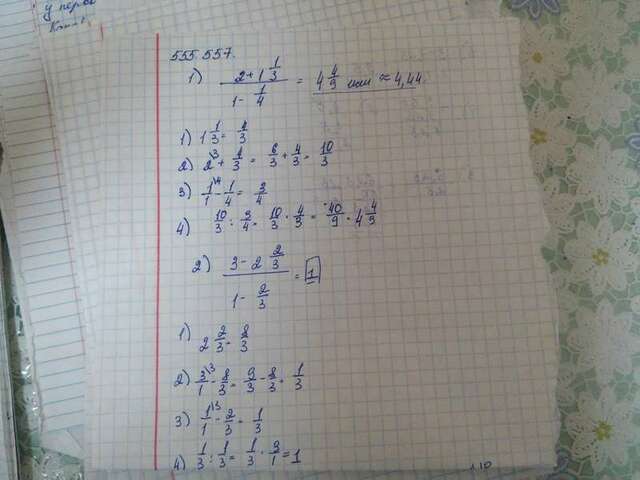 у перво
555.557.
1) (2 + 1 1/3) / (1 - 1/4) = 4 4/9 или ≈ 4,44.
1) 1 1/3 = 4/3
2) 2\3 + 4/3 = 6/3 + 4/3 = 10/3
3) 1/1\4 - 1/4 = 3/4
4) 10/3 : 3/4 = 10/3 · 4/3 = 40/9 = 4 4/9
2) (3 - 2 2/3) / (1 - 2/3) = 1
1) 2 2/3 = 8/3
2) 3/1\3 - 8/3 = 9/3 - 8/3 = 1/3
3) 1/1\3 - 2/3 = 1/3
4) 1/3 : 1/3 = 1/3 · 3/1 = 1